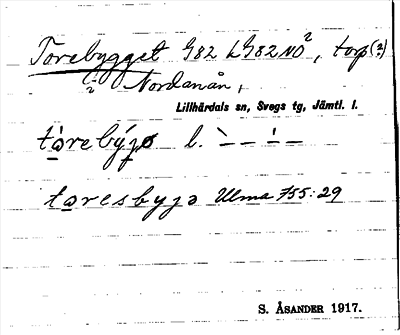 Torebygget 982 L 982 NO², torp(?)
i Nordanån,
Lillhärdals sn, Svegs tg, Jämtl. l.
tạrebýgə l. ˋ – – ˊ – –
tạresbygə Ulma 755:29
S. ÅSANDER 1917.